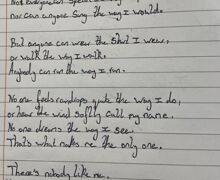 Not everyone can speak
nor can anyone sing the way I would.
But anyone can wear the shirt I wear,
or walk the way I walk.
Anybody can run the way I run.
No one feels raindrops quite the way I do,
or hear the wind softly call my name.
No one dreams the way I see.
That's what makes me the only one.
There's nobody like me.